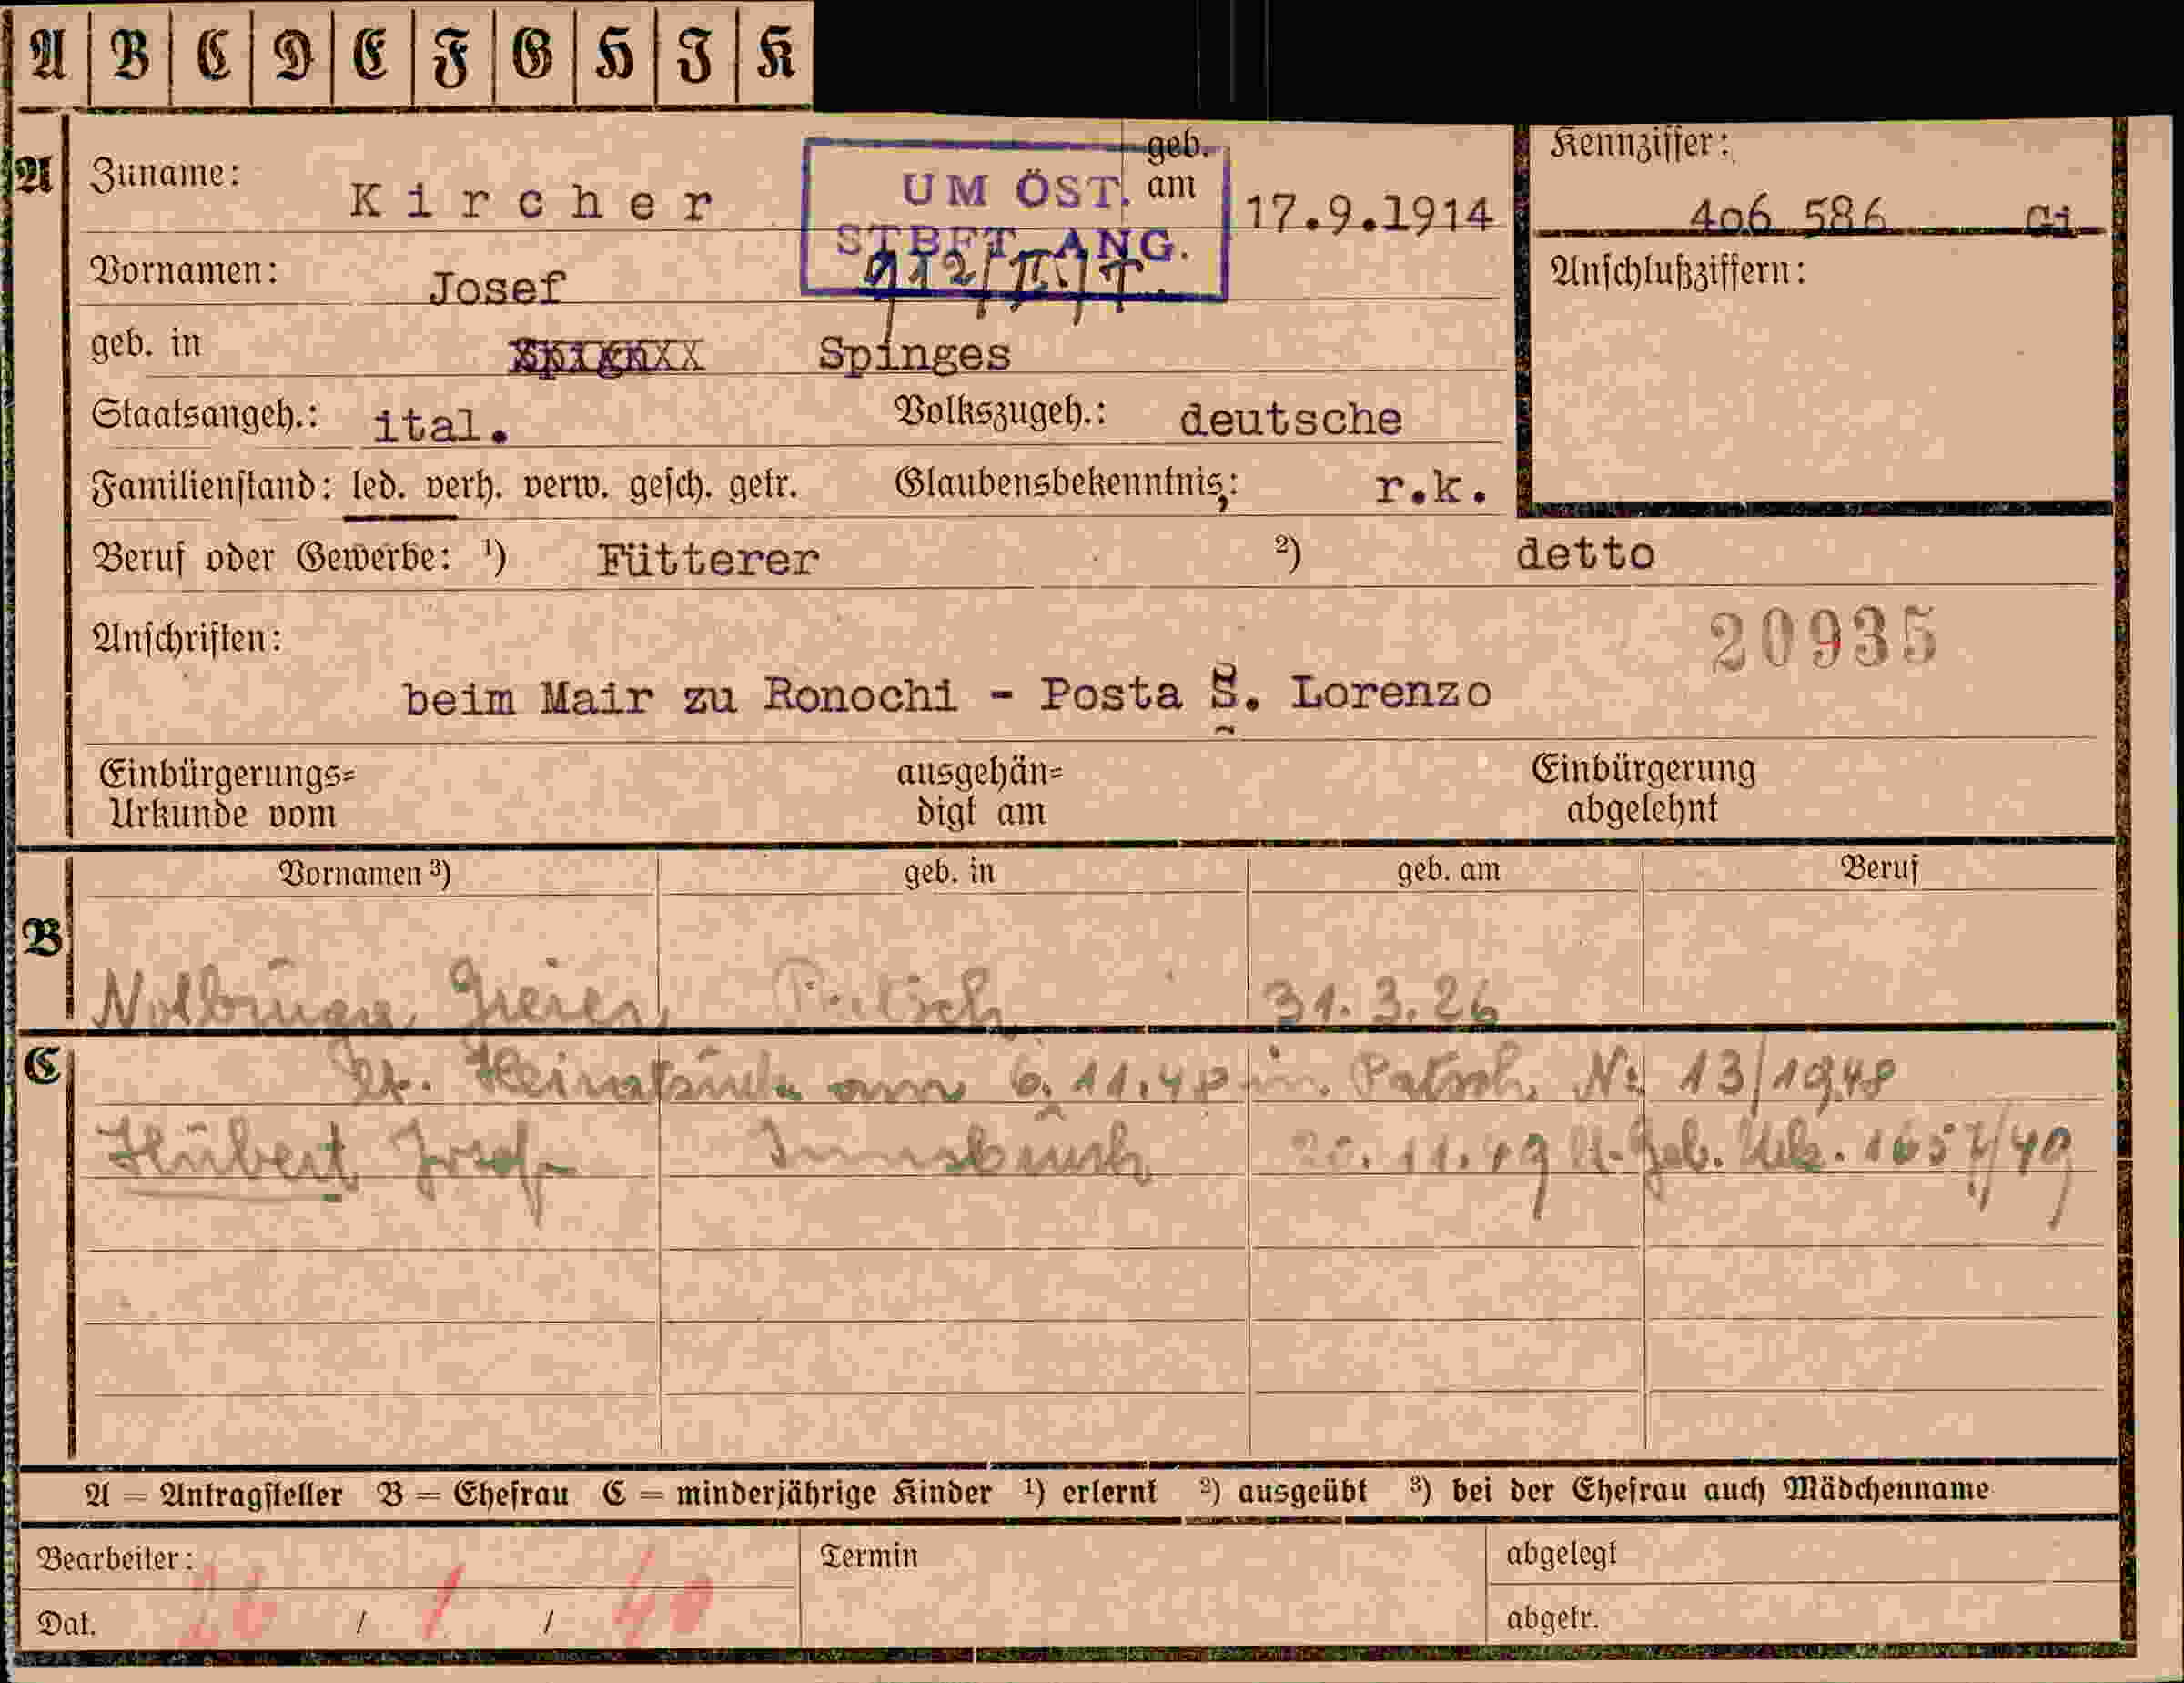 A B C D E F G H I K
A Zuname: Kircher geb. am 17.9.1914 Kennziffer: 406 586 Gi
UM ÖST.
STBFT. ANG.
Vornamen: Josef Anschlußziffern:
geb. in Spinges
Staatsangeh.: ital. Volkszugeh.: deutsche
Familienstand: led. verh. verw. gesch. getr. Glaubensbekenntnis: r.k.
Beruf oder Gewerbe: ¹) Fütterer ²) detto
20935
Anschriften:
beim Mair zu Ronochi - Posta S. Lorenzo
Einbürgerungs= ausgehän= Einbürgerung
Urkunde vom digt am abgelehnt
Vornamen ³) geb. in geb. am Beruf
B
31.3.26
C am 6.11.48 in Patsch Nr 13/1948
Hubert Josef Innsbruck 11.49 Geb. Urk. 1657/49
A = Antragsteller B = Ehefrau C = minderjährige Kinder ¹) erlernt ²) ausgeübt ³) bei der Ehefrau auch Mädchenname
Bearbeiter: Termin abgelegt
Dat. 26 / 1 / 40 abgetr.